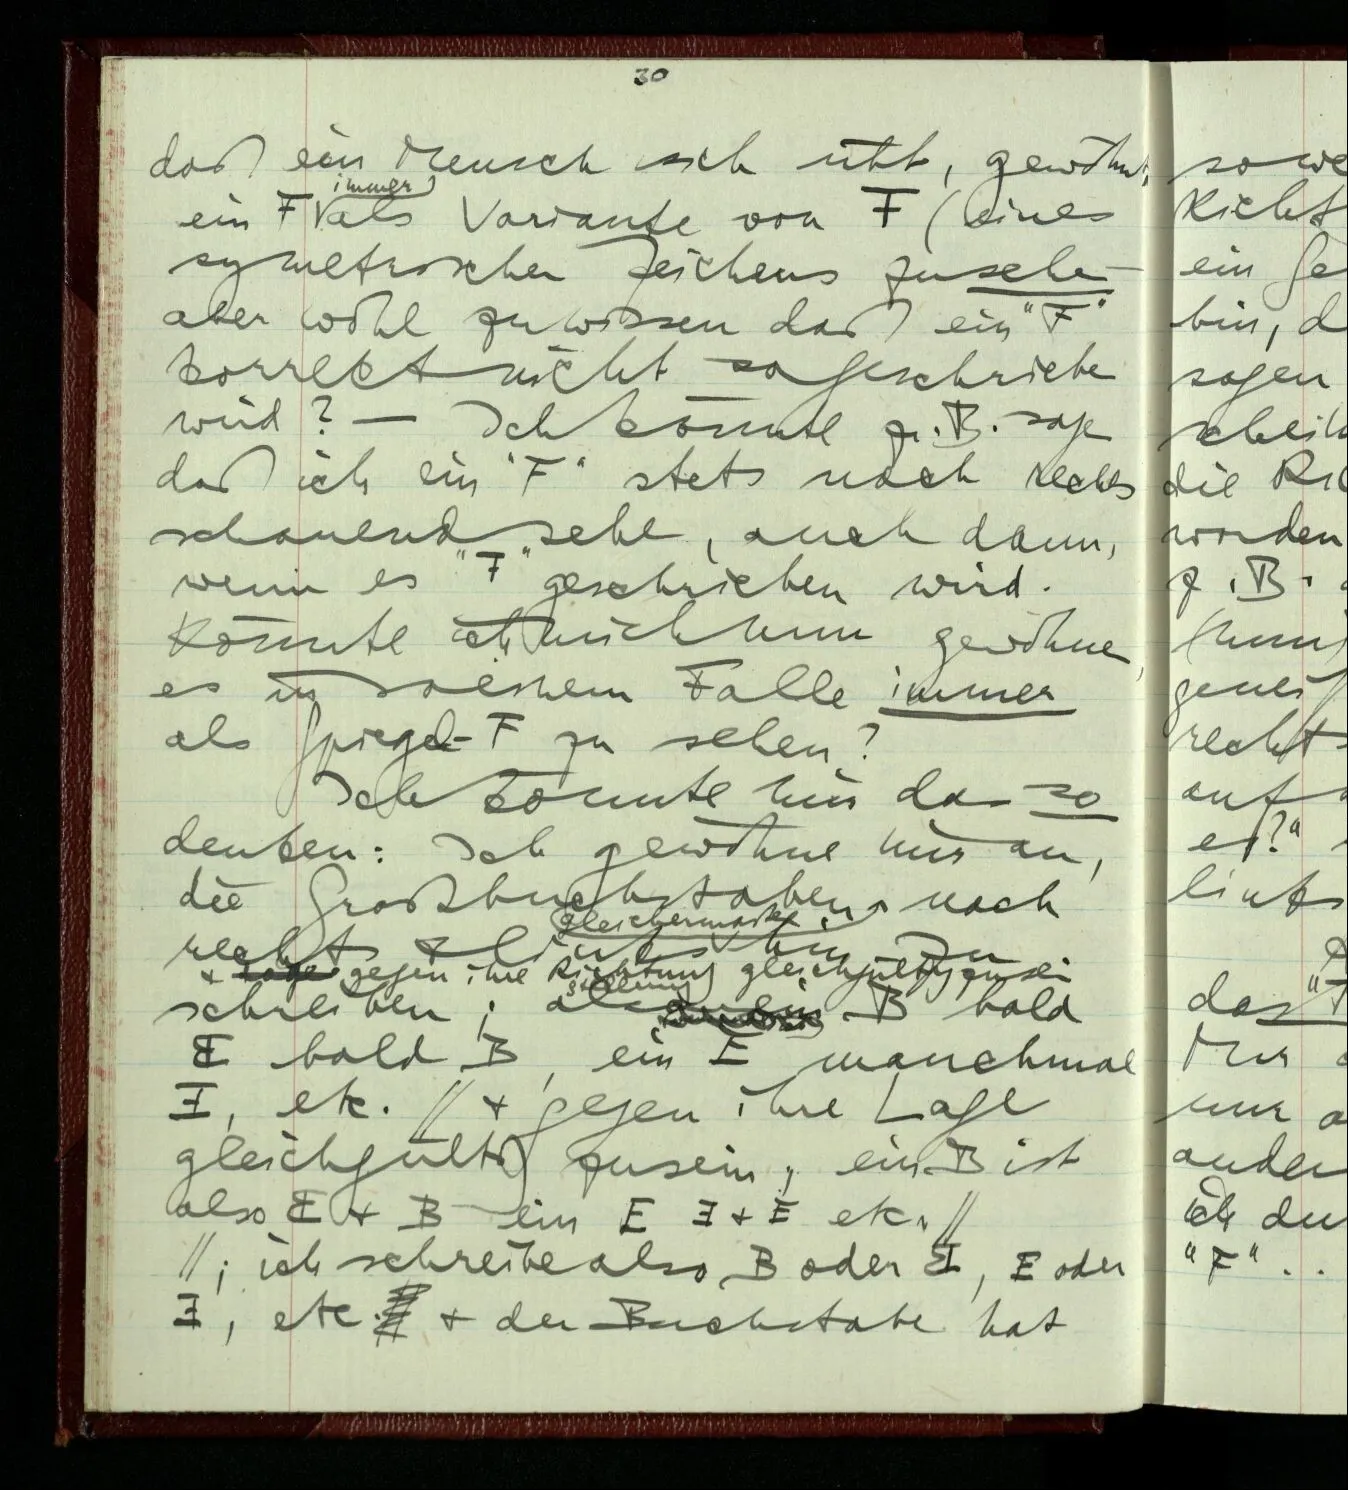 30
daß ein Mensch sich übt, gewöhnt,
immer
ein F als Variante von F (eines
symetrischen Zeichens zu sehe
aber wohl zu wissen daß ein "F"
korrekt nicht so geschriebe
wird? — Ich könnte z.B. sage
daß ich ein "F" stets nach rechts
schauend sehe, auch dann,
wenn es "F" geschrieben wird.
Könnte ich mich nun gewöhne,
es in solchem Falle immer
als Spiegel-F zu sehen?
Ich könnte mir das so
denken: Ich gewöhne mir an,
die Großbuchstaben nach
gleichermaßen
rechts & links hin zu
& gegen ihre Richtung gleichgültig zu sei
Stellung
schreiben; also ein B bald
B bald B, ein E manchmal
Ǝ, etc. // & gegen ihre Lage
gleichgültig zu sein; ein B ist
also B & B ein E Ǝ & E etc. //
//; ich schreibe also B oder B, E oder
Ǝ, etc. & der Buchstabe hat
sowe
Richt
ein Ge
bin, d
sagen
schein
die Ric
worden
z.B.
(nun)
geneig
rechts
auf
er?"
links
das "F
Mir
nur a
ander
ich du
"F"..